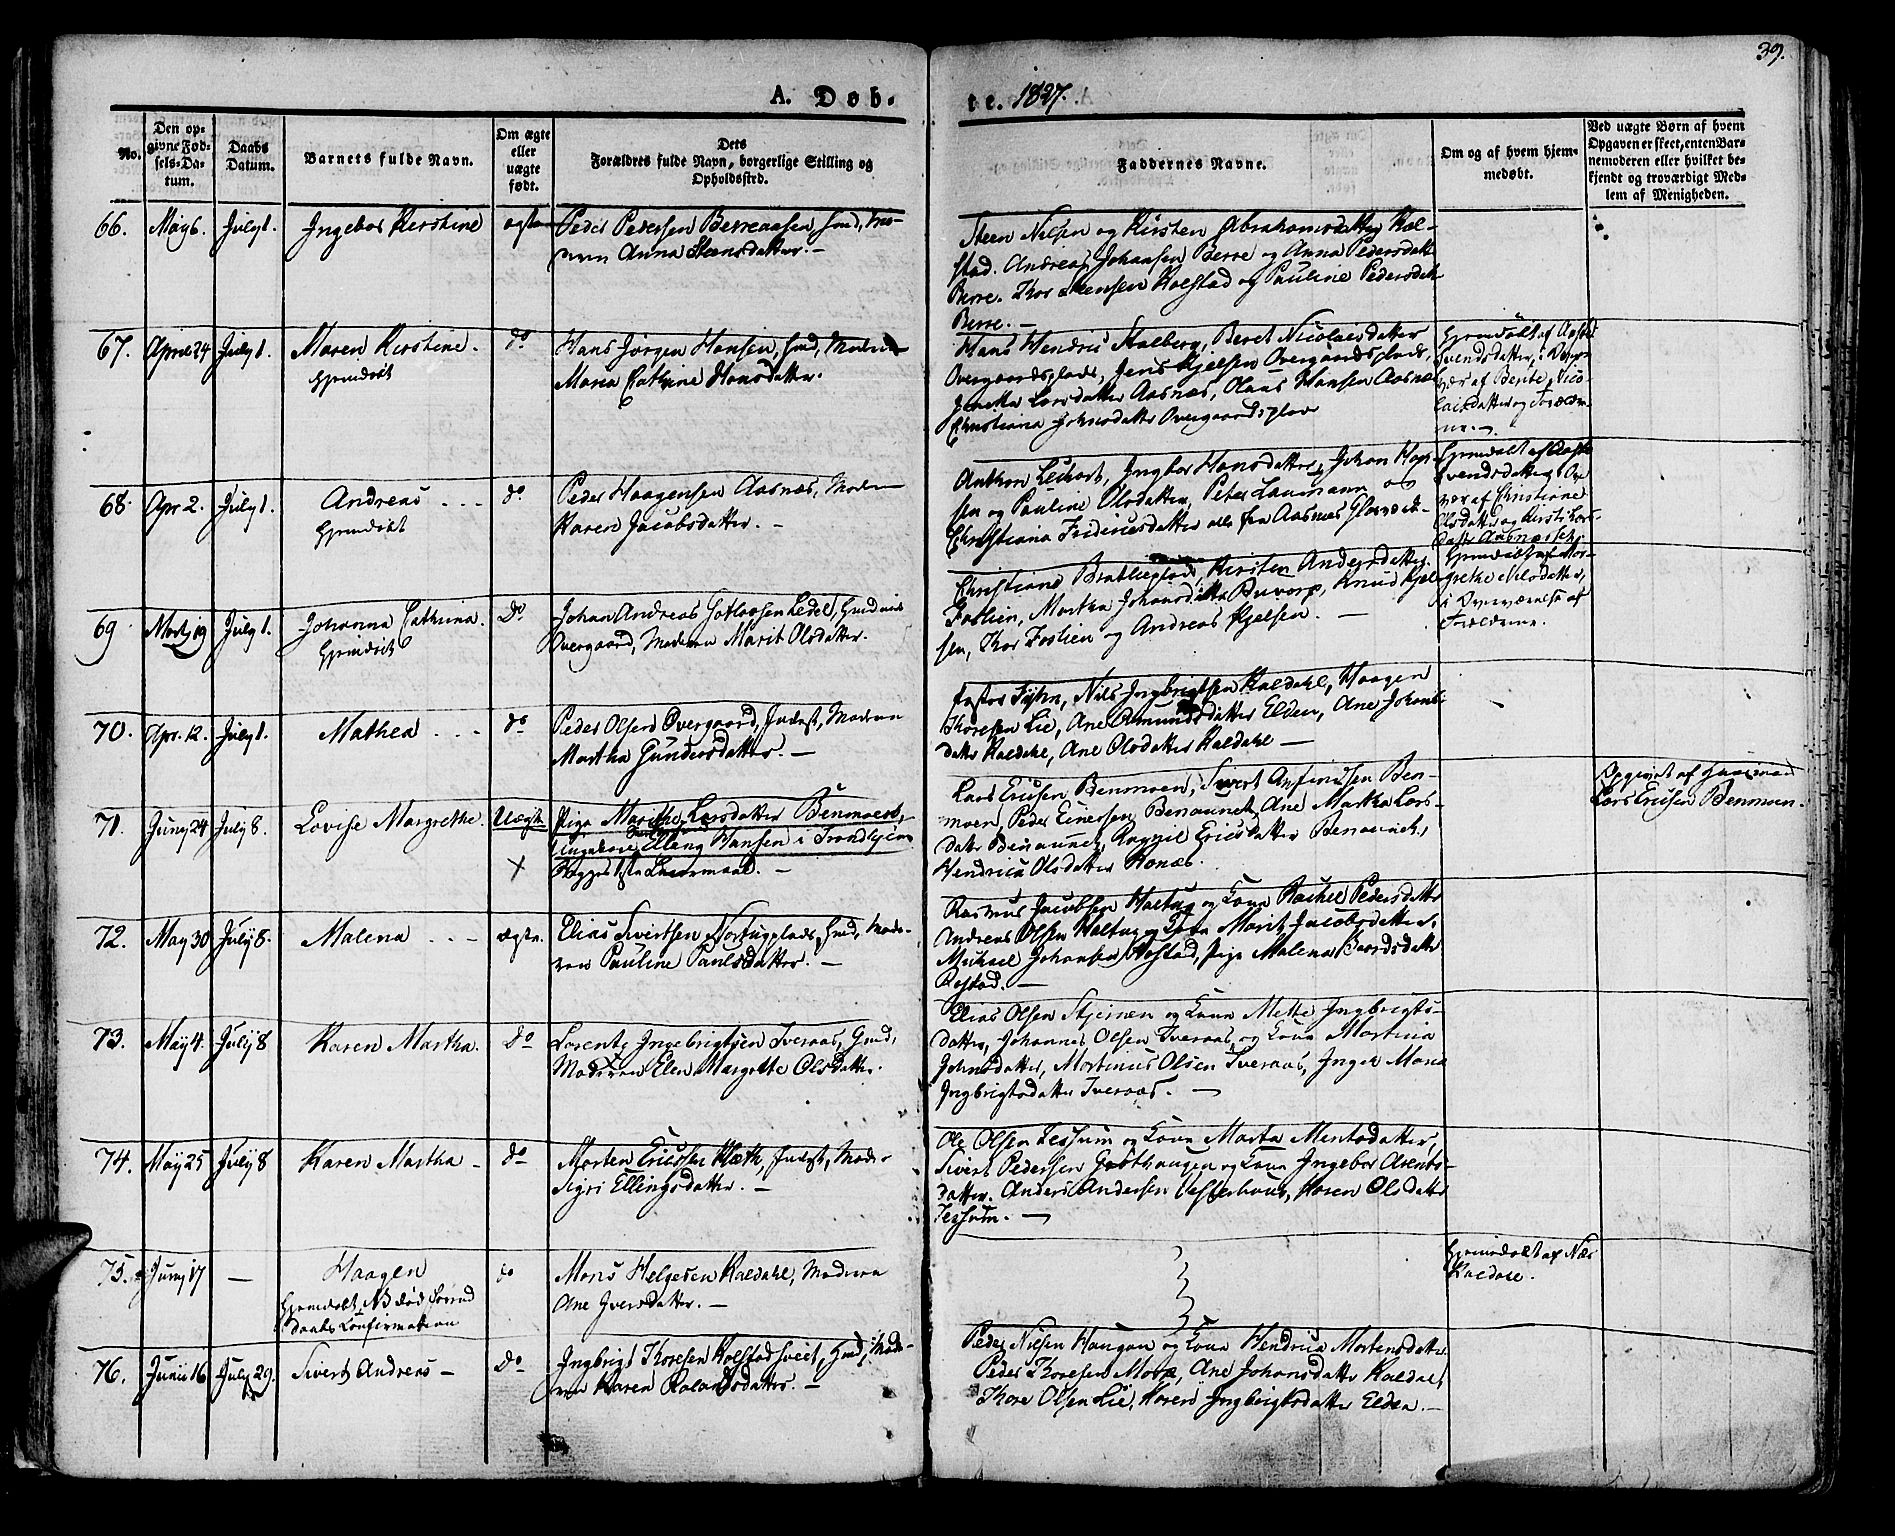 39.
A. Døb-
te. 1827.
No.
Den op-
givne Fød-
sels-Da-
tum.
Daabs
Datum.
Barnets fulde Navn.
Om ægte
eller
uægte
født.
Dets
Forældres fulde Navn, borgerlige Stilling og
Opholdssted.
Faddernes Navne.
Om og af hvem hjem-
medøbt.
Ved uægte Børn af hvem
Opgaven er skeet, enten Bar-
nemoderen eller hvilket be-
kjendt og troværdigt Med-
lem af Menigheden.
66. May 6. July 1. Ingebor Kirstine ægte
Peder Pedersen Berreaasen,
Anna Steensdatter. —
Steen Nilsen og Kirsten Abrahamsdatter Hol-
stad. Andreas Johansen Berre og Anna Pedersdatt
Berre. Thor Steensen Holstad og Pauline Pedersdatt
Berre. —
67. April 24 July 1. Maren Kirstine. do
Hjemdøbt
Hans Jørgen Hansen,
Maria Cathrine Hansdatter.
Hans Hendric Stalberg, Beret Nicolaisdatter
Overgaardsplads, Jens Kjelsen Overgaardsplads,
Larsdatter Aasnæs, Olaus Hansen Aasnæs
Christiana Johnsdatter
Hjemdøbt af
Svendsdatter, i Over-
vær af Bente Nico-
laisdatter og Forældre-
ne. —
68. Apr 2. July 1. Andreas do
Hjemdøbt
Peder Haagensen Aasnæs, Moderen
Karen Jacobsdatter. —
Anthon Ingbor Hansdatter, Johan Han-
sen og Pauline Olsdatter, Peter Laumann og
Christiana Fridericsdatter alle fra Aasnæs
Hjemdøbt af
Svendsdatter, i Over
vær af Christiane
Olsdatter og Kirsti Lars-
datter
69 July 1. Johanna Cathrina. Do
Hjemdøbt
Johan Andreas
Overgaard, Moderen Marit Olsdatter.
Christiane Kirsten Andersdatter
Foslien, Martha Johansdatter Knud Kjel-
sen, Thor Foslien og Andreas Kjelsen. —
Hjemdøbt af Mar-
grethe Nilsdatter,
i Overværelse af
Forældrene.
70. Apr. 12. July 1. Mathea do
Peder Olsen Overgaard, Inderst, Moderen
Martha Gundersdatter —
Pastor Nils Ingbrigtsen Kaldahl, Haagen
Thoresen Lie, Ane Amundsdatter Elden, Ane Johans-
datter Kaldahl, Ane Olsdatter Kaldahl —
71. Juny 24 July 8. Lovise Margrethe. Uægte
Pige Marithe Larsdatter Benmoen,
Ungkarl Elling Hansen i Trondhjem
Begges 1ste Leiermaal. —
Lars Ericsen Benmoen, Sivert Amfindsen Ben-
moen, Peder Einersen Benaunet, Ane Martha Lars-
datter Benaunet, Ragnil Ericsdatter Benaunet,
Hendrica Olsdatter
Opgivet af Huusmand
Lars Ericsen Benmoen.
72. May 30 July 8. Malena ægte.
Elias Sivertsen Nortugplads, Hmd, Mode-
ren Pauline Paulsdatter. —
Rasmus Jacobsen Holtug og Kona Rachel Pedersdatter
Andreas Olsen Holtug og Kona Marit Jacobsdatter,
Michael Johansen Rostad, Pige Malena Baardsdatter
Rostad. —
73. May 4. July 8 Karen Martha. do
Lorents Ingebrigtsen Tveraas, Hmd,
Moderen Elen Margrethe Olsdatter.
Elias Olsen Stjernen og Kona Mette Ingbrigts-
datter, Johannes Olsen Tveraas, og Kona Martina
Johnsdatter, Martinus Olsen Tveraas, Inger Maria
Ingbrigtsdatter Tveraas. —
74. May 25 July 8 Karen Martha — do
Morten Ericsen Inderst, Mode-
Sigri Ellingsdatter. —
Ole Olsen Tessum og Kona Marta Mentsdatter,
Sivert Pedersen Grøthaugen og Kona Ingebor Arents-
datter. Anders Andersen Vesterhuus, Karen Olsdatter
Tessum. —
75. Juny 17 — Haagen do
Hjemdøbt, NB død forend
daabs Confirmation
Mons Helgesen Kaldahl, Moderen
Ane Iversdatter. —
Hjemdøbt af
Kaldahl.
76. Junii 16 July 29. Sivert Andreas — Do
Ingbrigt Thoresen Holstadsveet, Hmd, Mode-
ren Karen Rolandsdatter. —
Peder Nilsen Haugan og Kona Hendrica Mortensdatter
Peder Thoresen Ane Johansdatter Kaldal,
Thore Olsen Lie, Karen Ingbrigtsdatter Elden. —